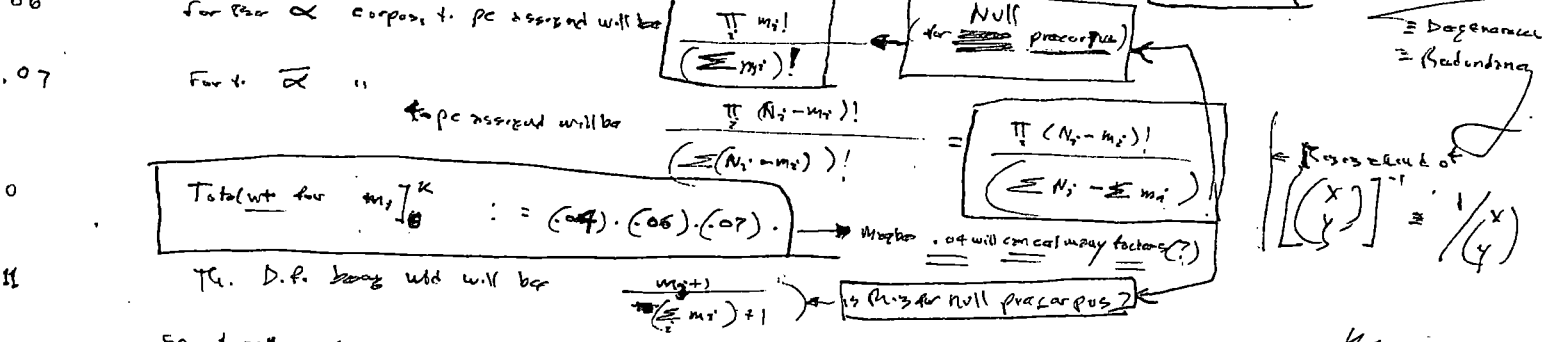 .06 for their α corpos, t. pc assigned will be ∏ mᵢ! / (Σ mᵢ)! ← (for Null precorpus)
≡ Degeneracy
≡ Redundancy
.07 For t. ᾱ "
t. pc assigned will be ∏ (Nᵢ-mᵢ)! / (Σ(Nᵢ-mᵢ))! = ∏ (Nᵢ-mᵢ)! / (ΣNᵢ - Σmᵢ)!
[(x y)]⁻¹ ≡ 1/(x y)
0 Total wt for mᵢ] : = (.04).(.06).(.07). → Maybe .04 will cancel many factors(?)
11 T. D.F. will be mᵢ+1 / (Σ mᵢ)+1 ) ← is this for null precorpus?